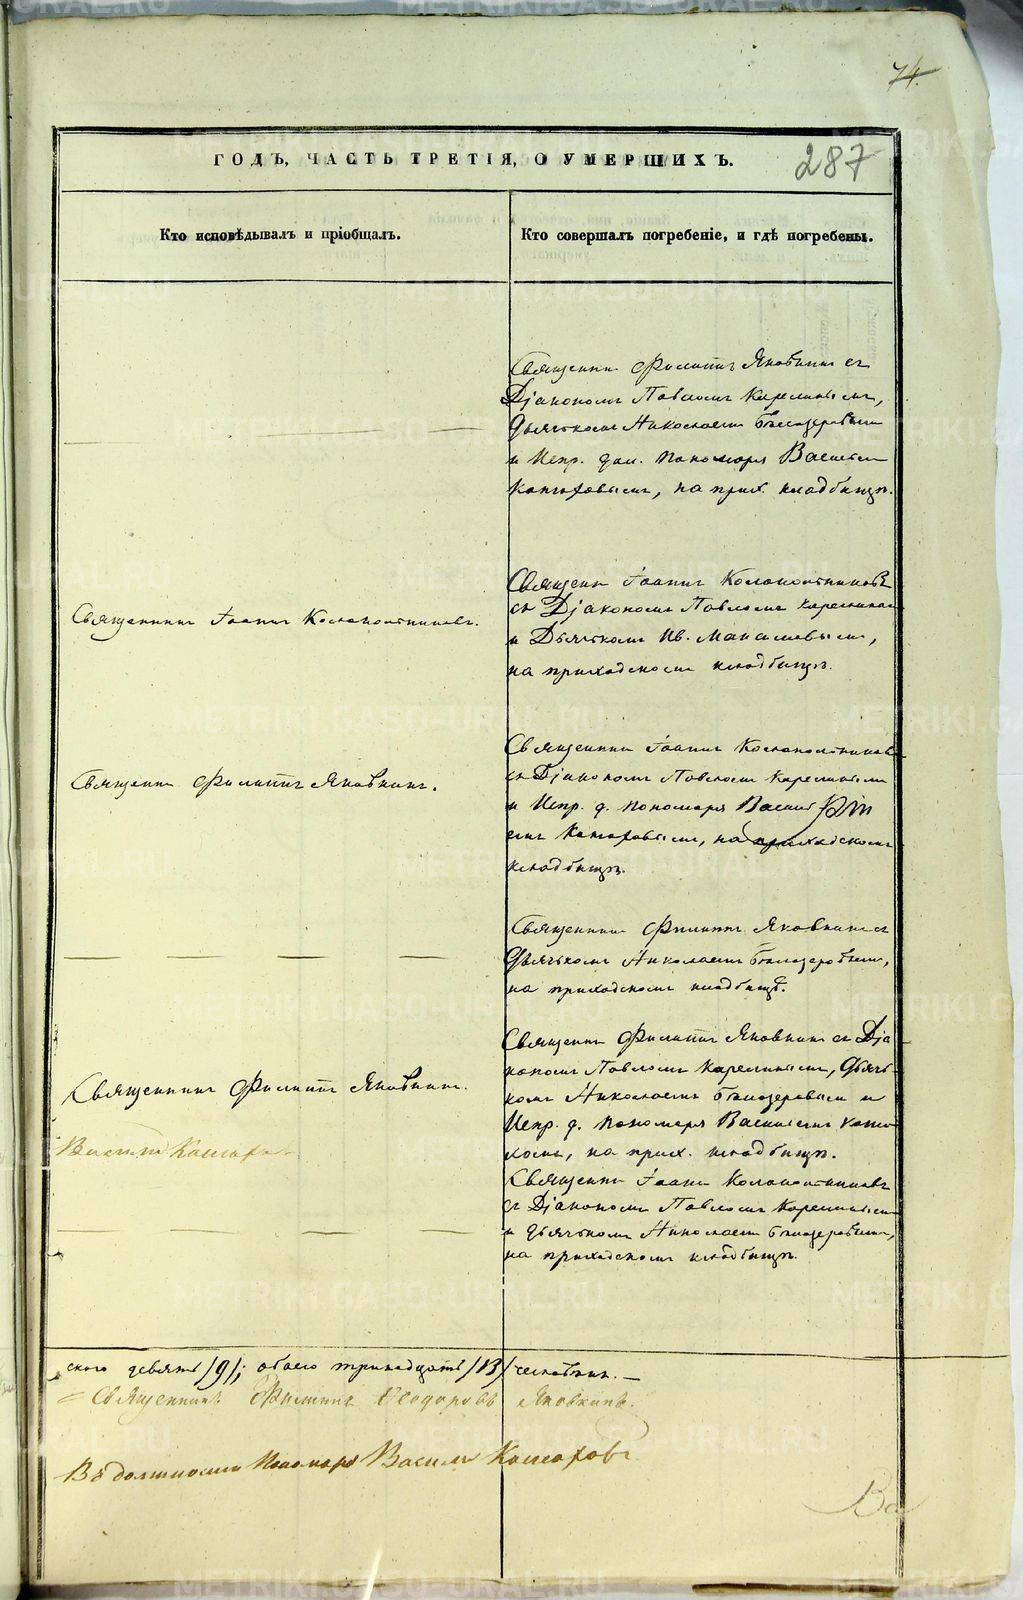 74.
ГОДЪ, ЧАСТЬ ТРЕТІЯ, О УМЕРШИХЪ.
287
Кто исповѣдывалъ и пріобщалъ.
Кто совершалъ погребеніе, и гдѣ погребены.
Священникъ Филиппъ Яковкинъ съ
Діакономъ Павломъ Карелинымъ,
Дьячкомъ Николаемъ Бѣлозеровымъ
и Испр. дол. Пономаря Василіем
на прих. кладбищѣ.
Священникъ Іоаннъ Колокольниковъ.
Священ. Іоаннъ Колокольниковъ
съ Діакономъ Павломъ Карелиным
и Дьячкомъ Ив.
на приходскомъ кладбищѣ.
Священникъ Филиппъ Яковкинъ.
Священникъ Іоаннъ Колокольников
съ Діакономъ Павломъ Карелинымъ
и Испр. д. Пономаря
на приходскомъ
кладбищѣ.
Священникъ Филиппъ Яковкинъ съ
Дьячкомъ Николаемъ Бѣлозеровымъ,
на приходскомъ кладбищѣ.
Священникъ Филиппъ Яковкинъ.
Священникъ Филиппъ Яковкинъ съ Діа
кономъ Павломъ Карелинымъ, Дьяч
комъ Николаемъ Бѣлозеровымъ и
Испр. д. Пономаря Василіемъ
на прих. кладбищѣ.
Священникъ Іоаннъ Колокольниковъ
съ Діакономъ Павломъ Карелинымъ
и дьячкомъ Николаемъ Бѣлозеровымъ,
на приходскомъ кладбищѣ.
ского девять /9/; обоего тринадцать /13/ человѣкъ.
Священникъ Филиппъ Ѳеодоровъ Яковкинъ.
Въ должности Пономаря Василій
Ва
METRIKI.GASO-URAL.RU